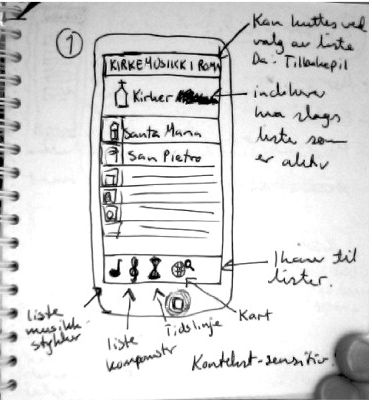 1
KIRKEMUSIKK I ROMA
Kirker
Santa Maria
San Pietro
Kan kuttes ved
valg av liste
Da: Tilbakepil
indikerer
hva slags
liste som
er aktiv
Ikoner til
lister.
Kart
Tidslinje
liste
komponister
liste
musikk-
stykker
Kontekst-sensitiv!